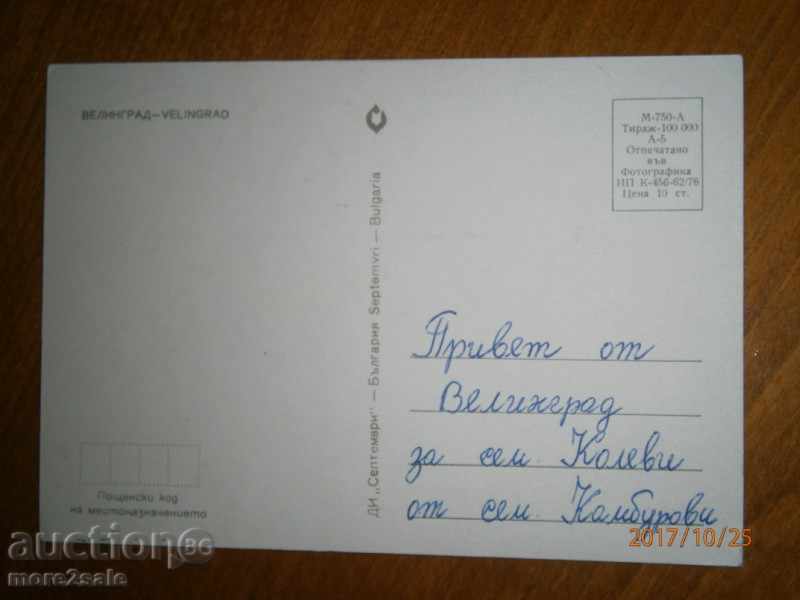 ВЕЛИНГРАД—VELINGRAD
М-750-А
Тираж-100 000
А-5
Отпечатано
във
Фотографика
ИП К-456-62/76
Цена 10 ст.
ДИ „Септември" — България Septemvri — Bulgaria
Привет от
Велинград
за сем. Колеви
от сем. Камбурови
Пощенски код
на местоназначението
2017/10/25
auction.bg
more2sale